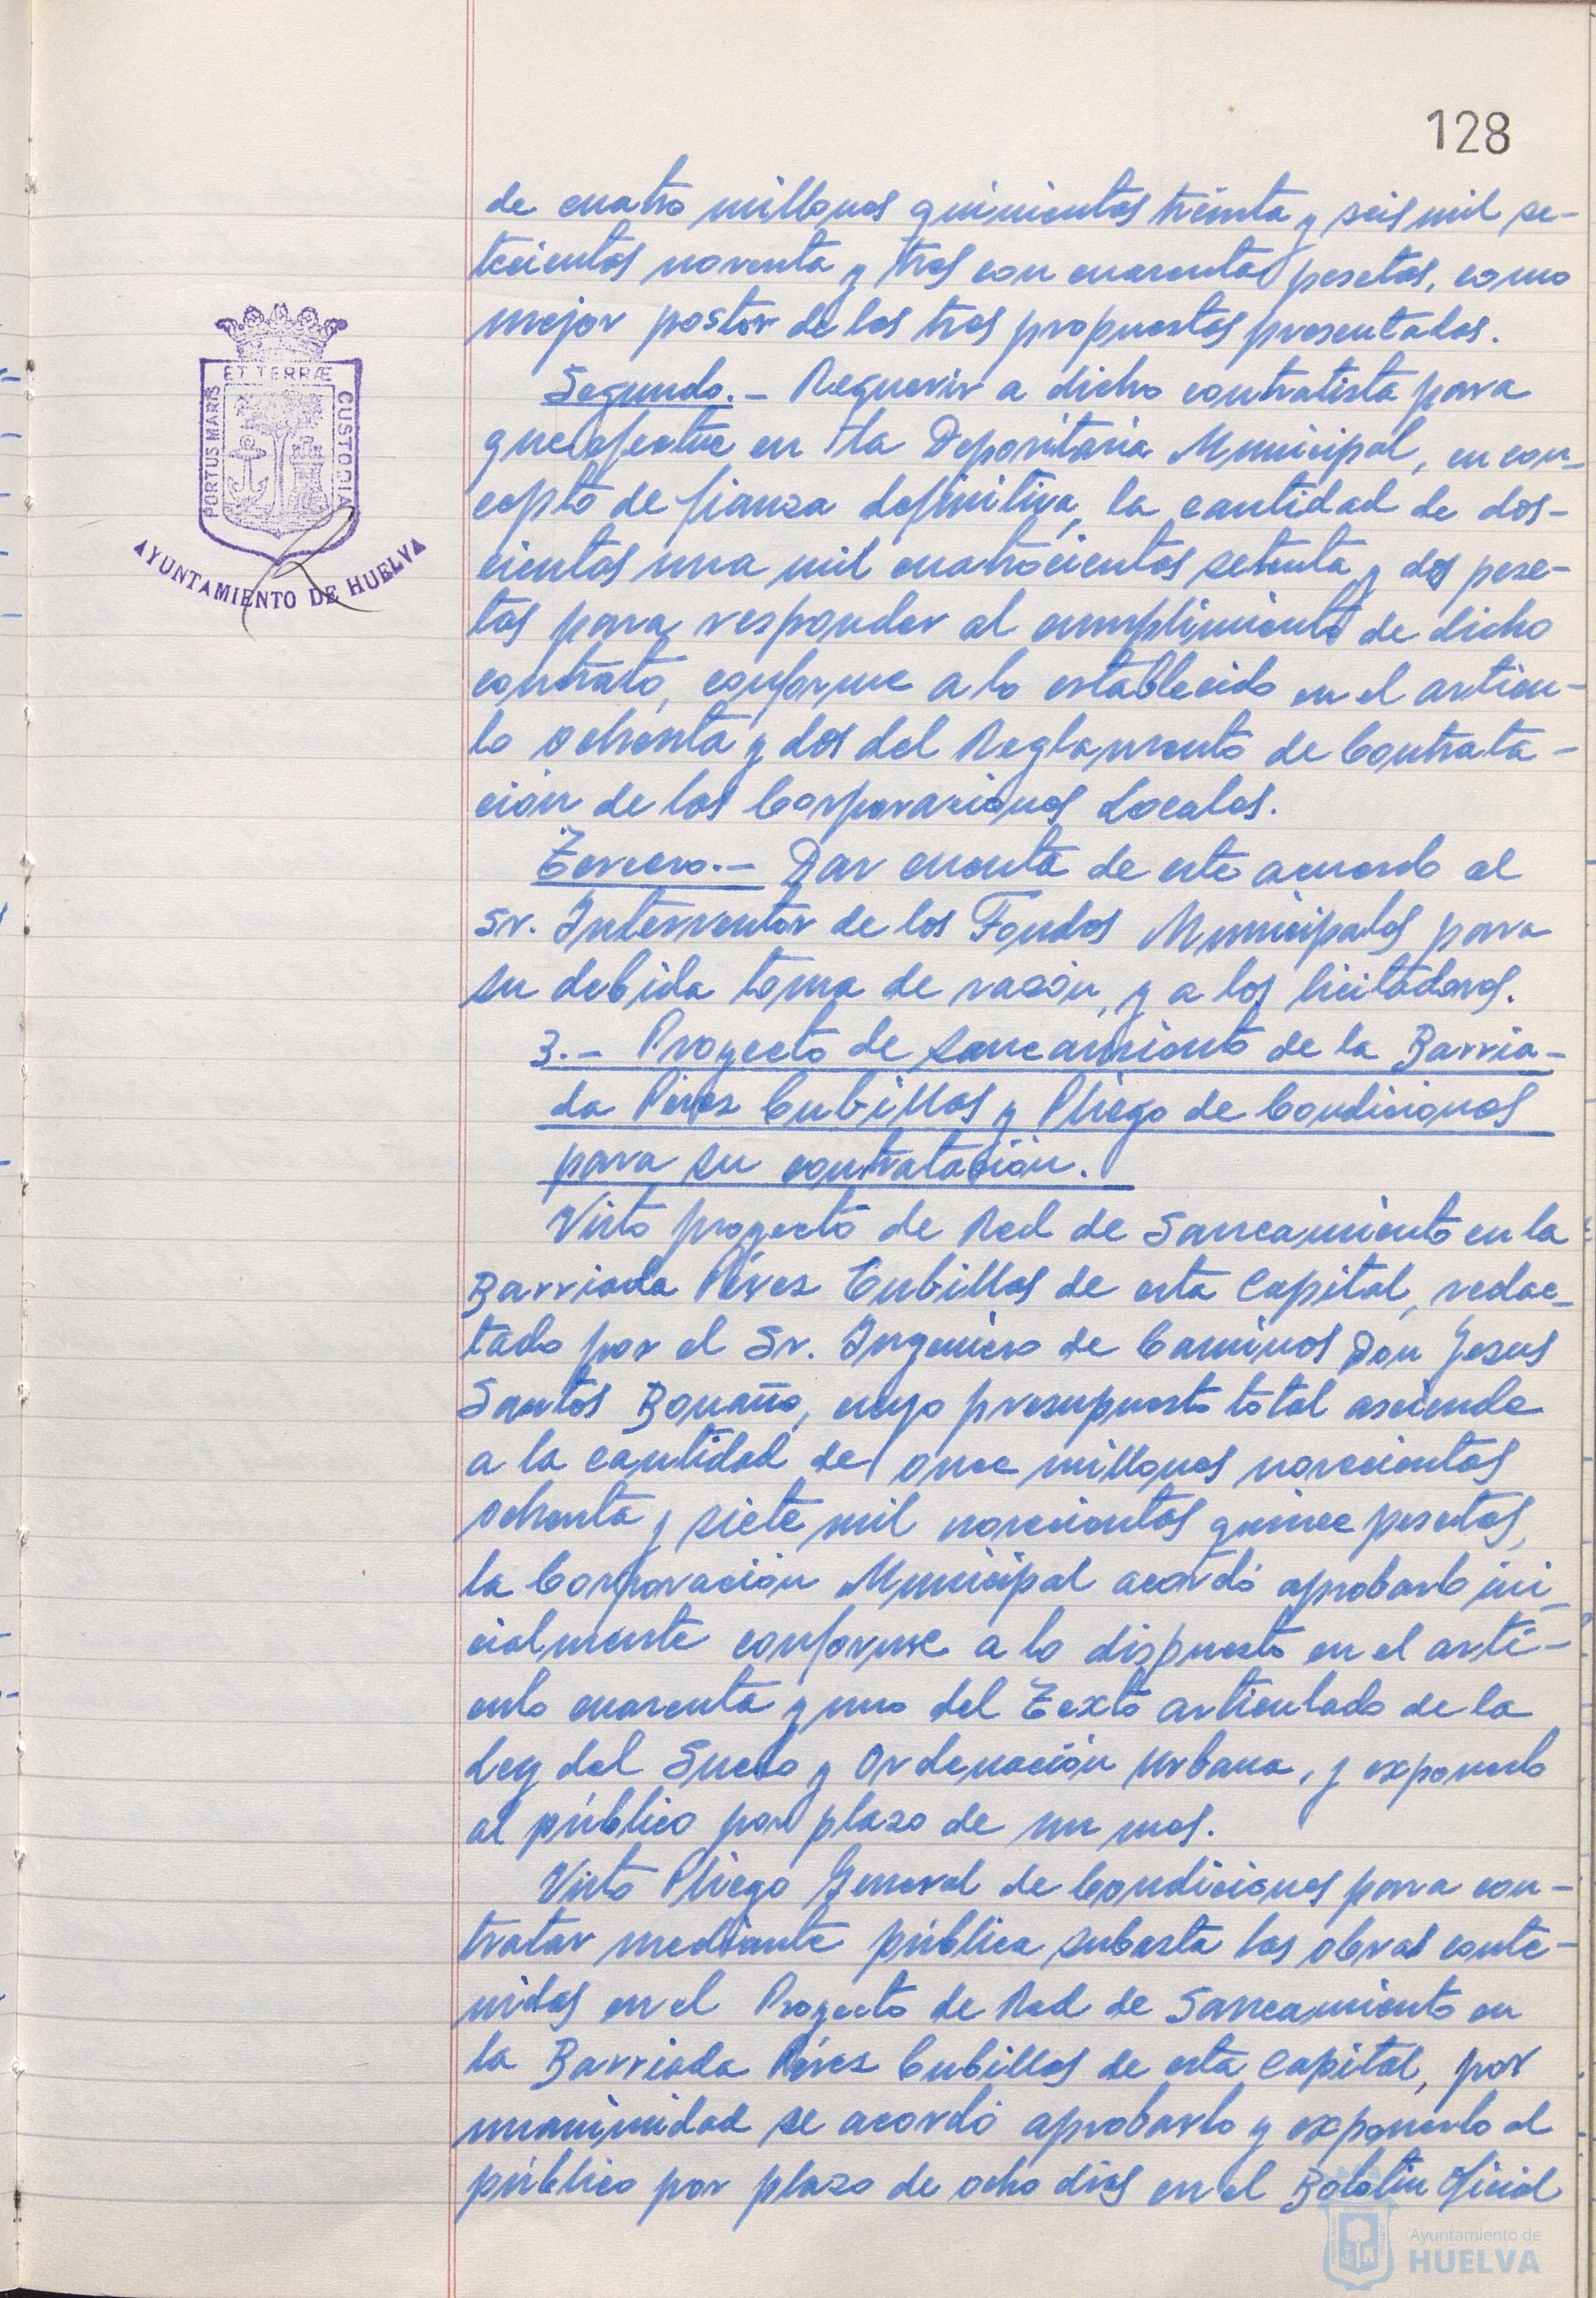 128
de cuatro millones quinientas treinta y seis mil se-
tecientas noventa y tres con cuarenta pesetas, como
mejor postor de las tres propuestas presentadas.
Segundo.- Requerir a dicho contratista para
que efectue en la Depositaria Municipal, en con-
cepto de fianza definitiva, la cantidad de dos-
cientas una mil cuatrocientas setenta y dos pese-
tas para responder al cumplimiento de dicho
contrato, conforme a lo establecido en el articu-
lo ochenta y dos del Reglamento de Contrata-
ción de las Corporaciones Locales.
Tercero.- Dar cuenta de este acuerdo al
Sr. Interventor de los Fondos Municipales para
su debida toma de razón, y a los licitadores.
3.- Proyecto de saneamiento de la Barria-
da Pérez Cubillas y Pliego de Condiciones
para su contratación.
Visto proyecto de Red de Saneamiento en la
Barriada Pérez Cubillas de esta Capital, redac-
tado por el Sr. Ingeniero de Caminos Don Jesus
Santos Bonaño, cuyo presupuesto total asciende
a la cantidad de once millones novecientas
ochenta y siete mil novecientas quince pesetas,
la Corporación Municipal acordó aprobarlo ini-
cialmente conforme a lo dispuesto en el artí-
culo cuarenta y uno del Texto articulado de la
Ley del Suelo y Ordenación Urbana, y exponerlo
al público por plazo de un mes.
Visto Pliego General de Condiciones para con-
tratar mediante pública subasta las obras conte-
nidas en el Proyecto de Red de Saneamiento en
la Barriada Pérez Cubillas de esta Capital, por
unanimidad se acordó aprobarlo y exponerlo al
público por plazo de ocho días en el Boletin Oficial
PORTUS MARIS ET TERRÆ CUSTODIA
AYUNTAMIENTO DE HUELVA
Ayuntamiento de
HUELVA